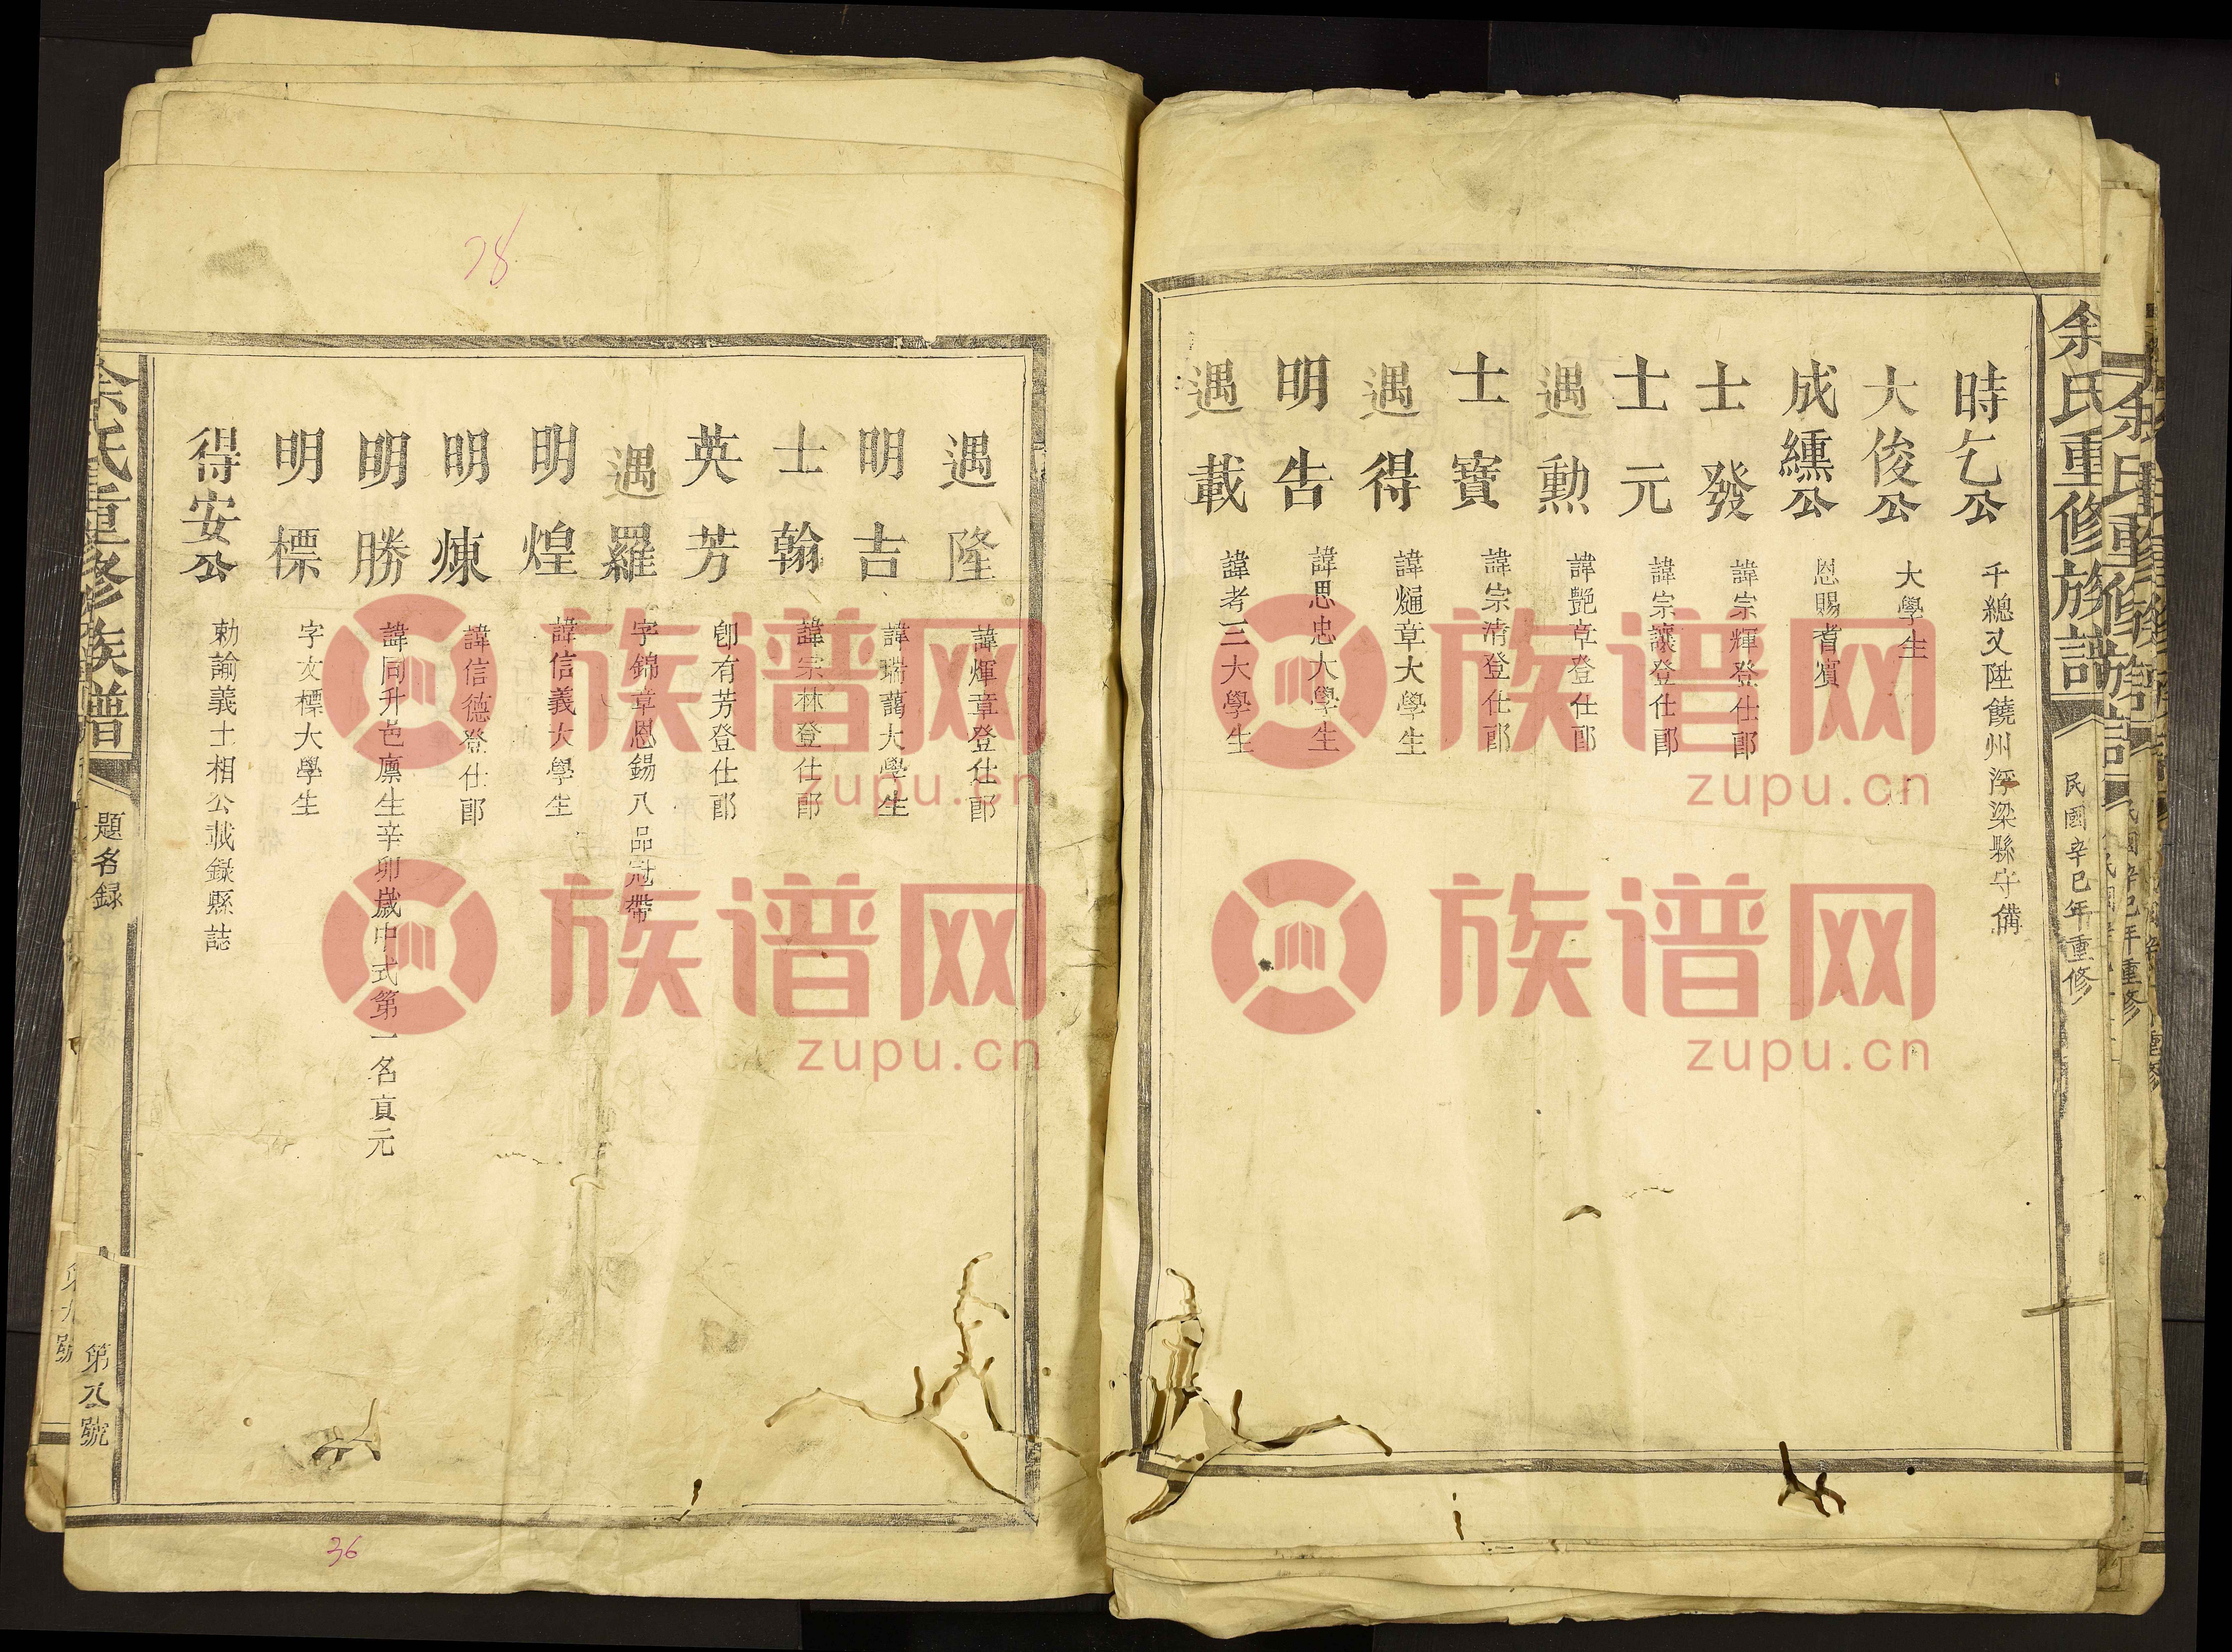 余氏重修族譜
民國辛巳年重修
時乞公 千總又陞饒州浮梁縣守備
大俊公 大學生
成纁公 恩賜耆賓
士發 諱宗輝登仕郎
士元 諱宗讓登仕郎
遇勳 諱艶章登仕郎
士寶 諱宗清登仕郎
遇得 諱章大學生
明告 諱思忠大學生
遇載 諱考三大學生
遇隆 諱煇章登仕郎
明吉 諱瑞藹大學生
士翰 諱宗林登仕郎
英芳 卽有芳登仕郎
遇羅 字錦章恩錫八品冠帶
明煌 諱信義大學生
明煉 諱信德登仕郎
明勝 諱同升邑廩生辛卯歲中式第一名貢元
明標 字文標大學生
得安公 勅諭義士相公載録縣誌
余氏重修族譜
題名録
第八號
第九號
78
36
族谱网
zupu.cn
族谱网
zupu.cn
族谱网
zupu.cn
族谱网
zupu.cn